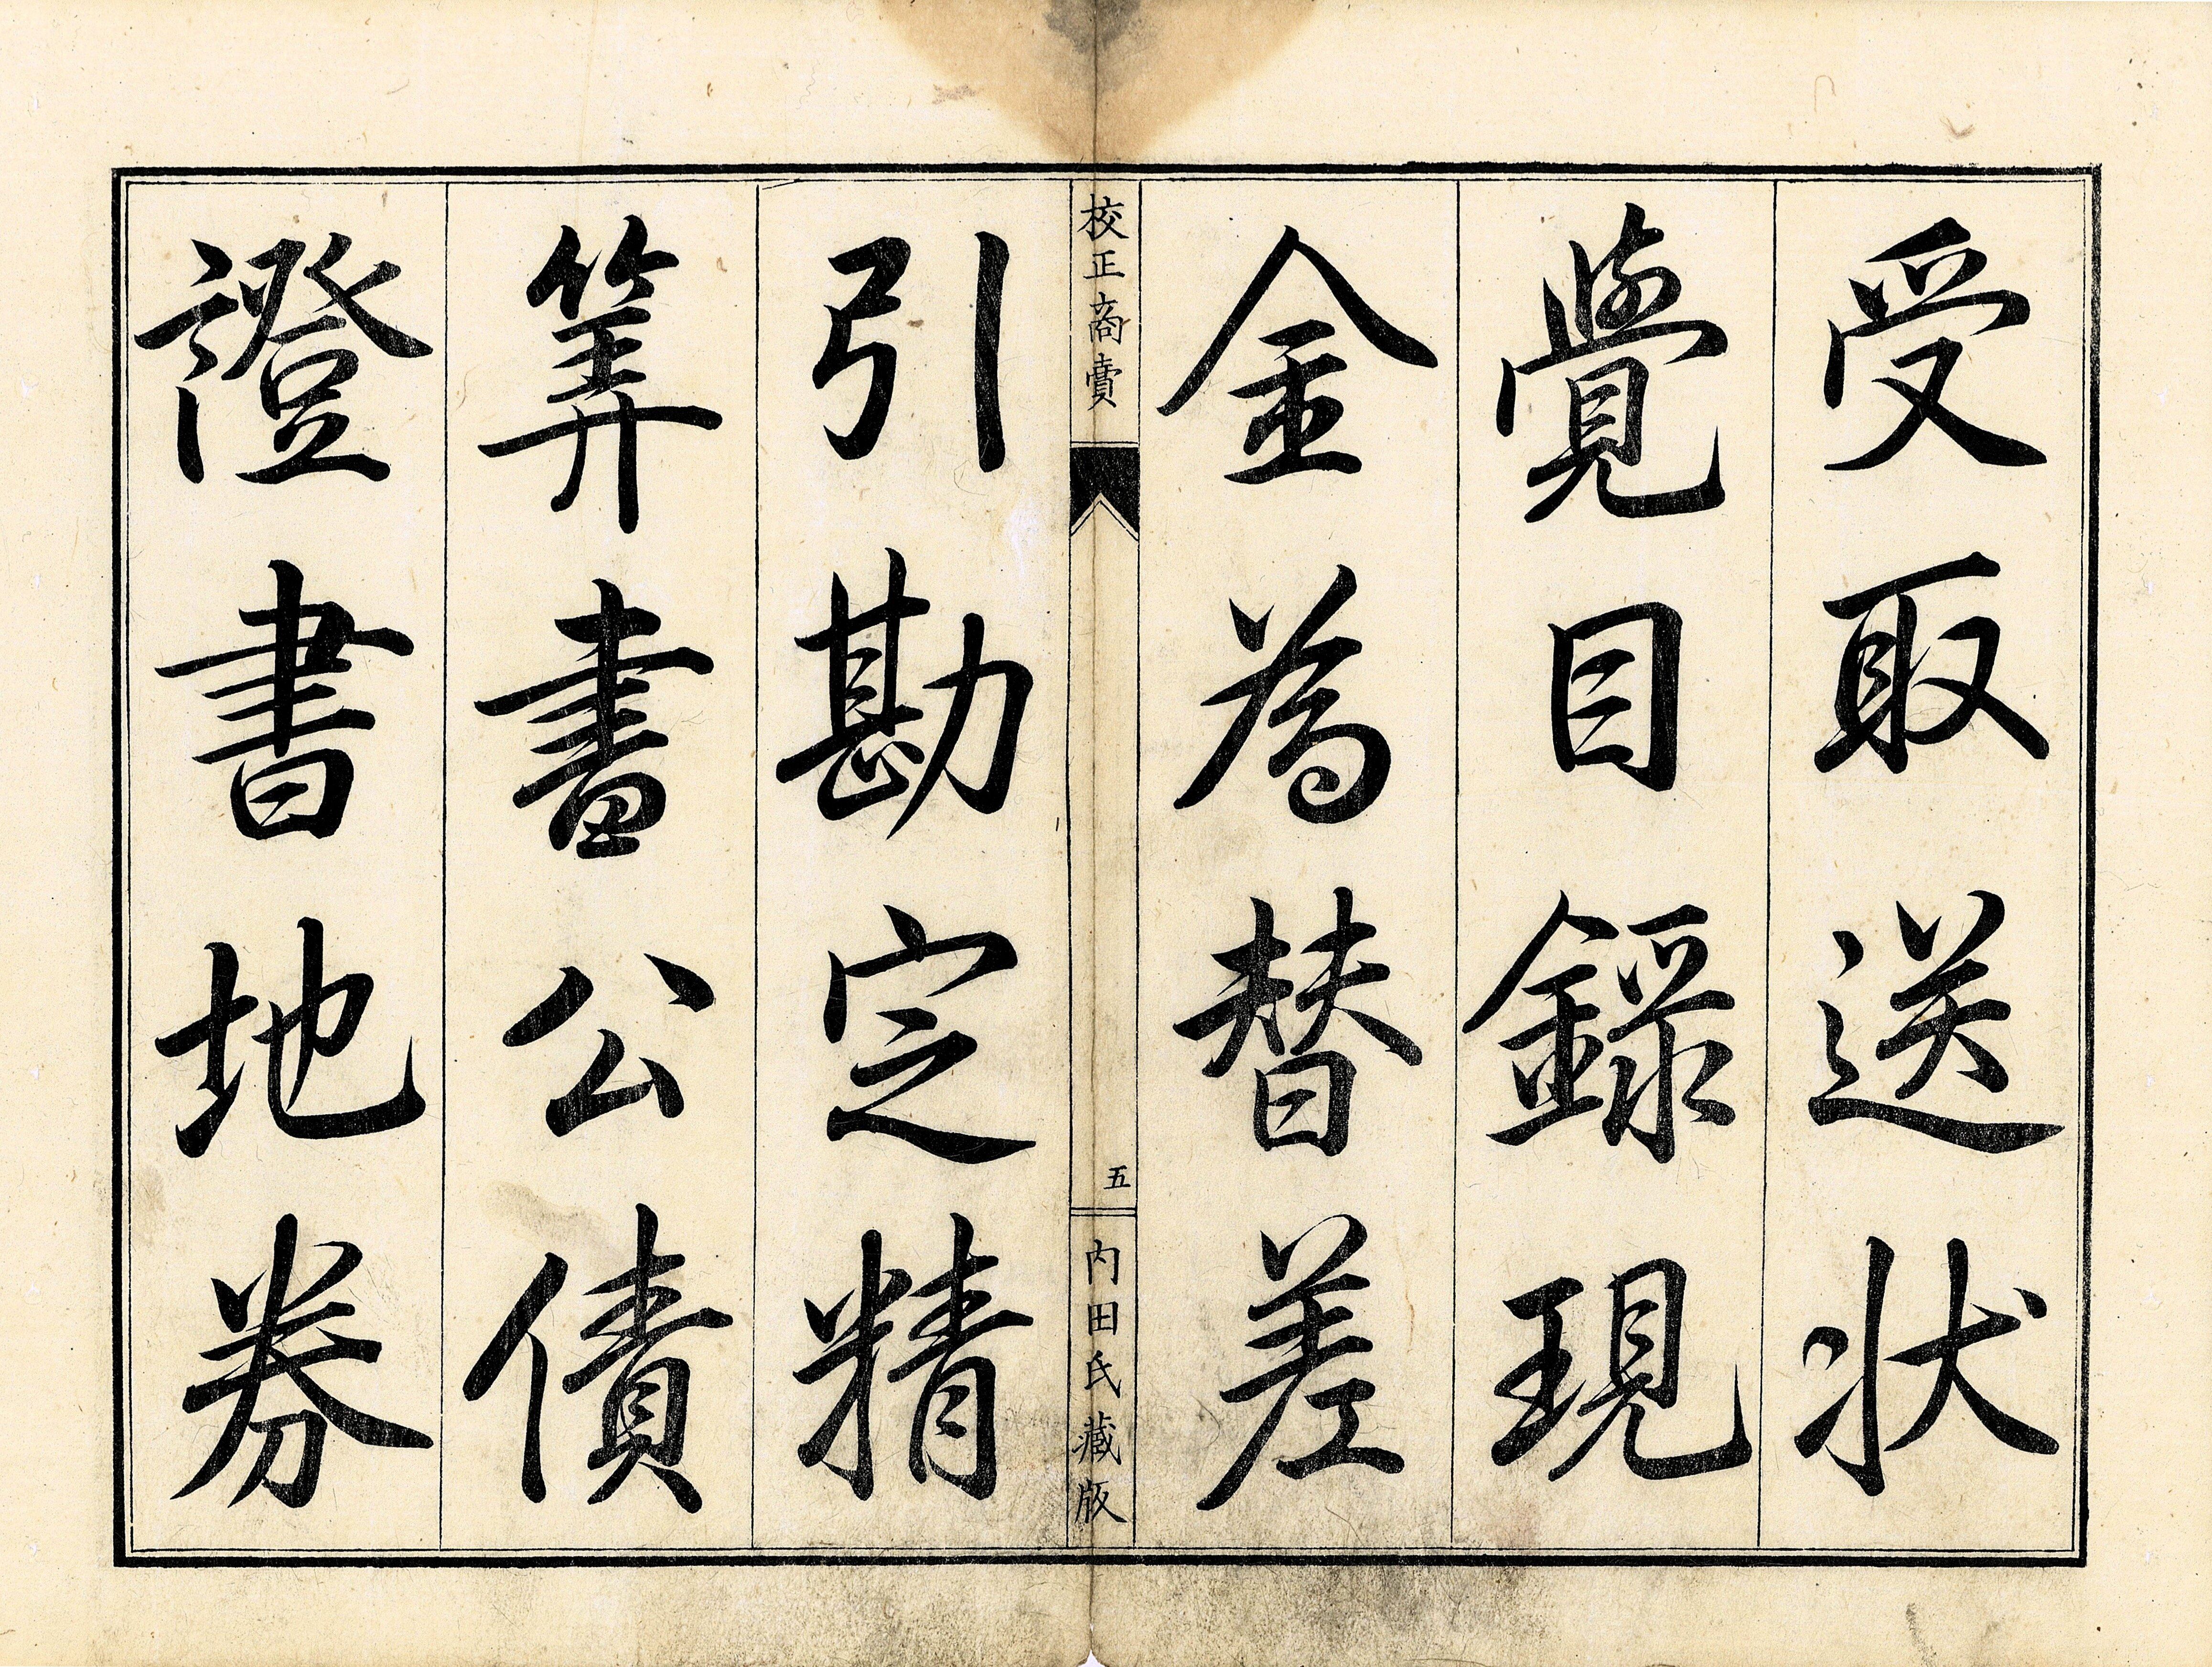 受取送状
覺目録現
金為替差
校正商賣
五
内田氏蔵版
引勘定精
筭畫公債
證書地券